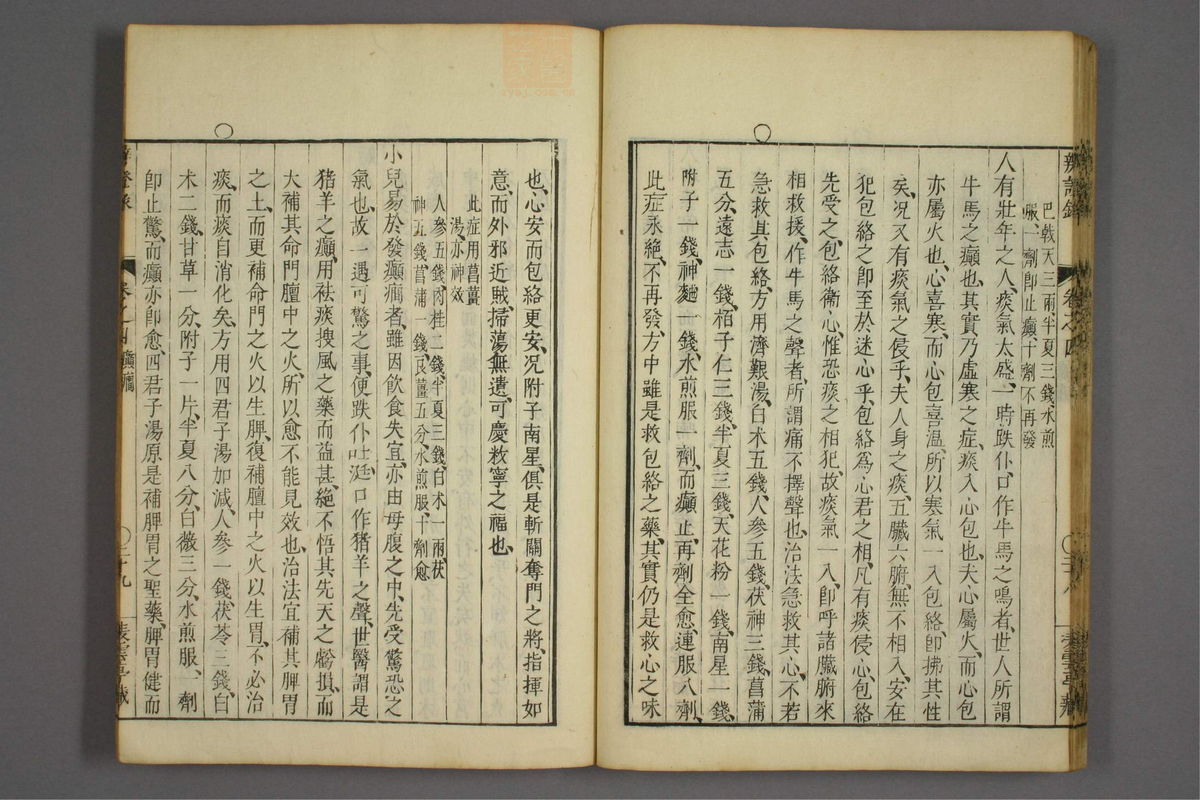 辨證錄 卷之四
巴戟天三兩半夏三錢水煎
服一劑即止癲十劑不再發
人有壯年之人、痰氣太盛、一時跌仆、口作牛馬之鳴者、世人所謂
牛馬之癲也、其實乃虛寒之症、痰入心包也、夫心屬火、而心包
亦屬火也、心喜寒、而心包喜溫、所以寒氣一入包絡、即拂其性
矣、况又有痰氣之侵乎、夫人身之痰、五臟六腑、無不相入、安在
犯包絡之即至於迷心乎、包絡爲心君之相、凡有痰侵心、包絡
先受之、包絡衛心、惟恐痰之相犯、故痰氣一入、即呼諸臟腑來
相救援、作牛馬之聲者、所謂痛不擇聲也、治法急救其心、不若
急救其包絡、方用濟艱湯、白术五錢、人參五錢、茯神三錢、菖蒲
五分、遠志一錢、栢子仁三錢、半夏三錢、天花粉一錢、南星一錢、
附子一錢、神麯一錢、水煎服、一劑、而癲止、再劑全愈、連服八劑、
此症永絶、不再發、方中雖是救包絡之藥、其實仍是救心之味
也、心安而包絡更安、况附子南星、俱是斬關奪門之將、指揮如
意、而外邪近賊、掃蕩無遺、可慶敉寧之福也、
此症用菖薑
湯、亦神效
人參五錢、肉桂二錢、半夏三錢、白术一兩、茯
神五錢、菖蒲一錢、良薑五分、水煎服、十劑愈
小兒易於發癲癇者、雖因飲食失宜、亦由母腹之中、先受驚恐之
氣也、故一遇可驚之事、便跌仆吐涎、口作猪羊之聲、世醫謂是
猪羊之癲、用袪痰搜風之藥而益甚、絶不悟其先天之虧損、而
大補其命門膻中之火、所以愈不能見效也、治法宜補其脾胃
之土、而更補命門之火以生脾、復補膻中之火以生胃、不必治
痰、而痰自消化矣、方用四君子湯加減、人參一錢、茯苓三錢、白
术二錢、甘草一分、附子一片、半夏八分、白薇三分、水煎服、一劑
即止驚、而癲亦即愈、四君子湯原是補脾胃之聖藥、脾胃健而
卷之四 癲癇 二十九